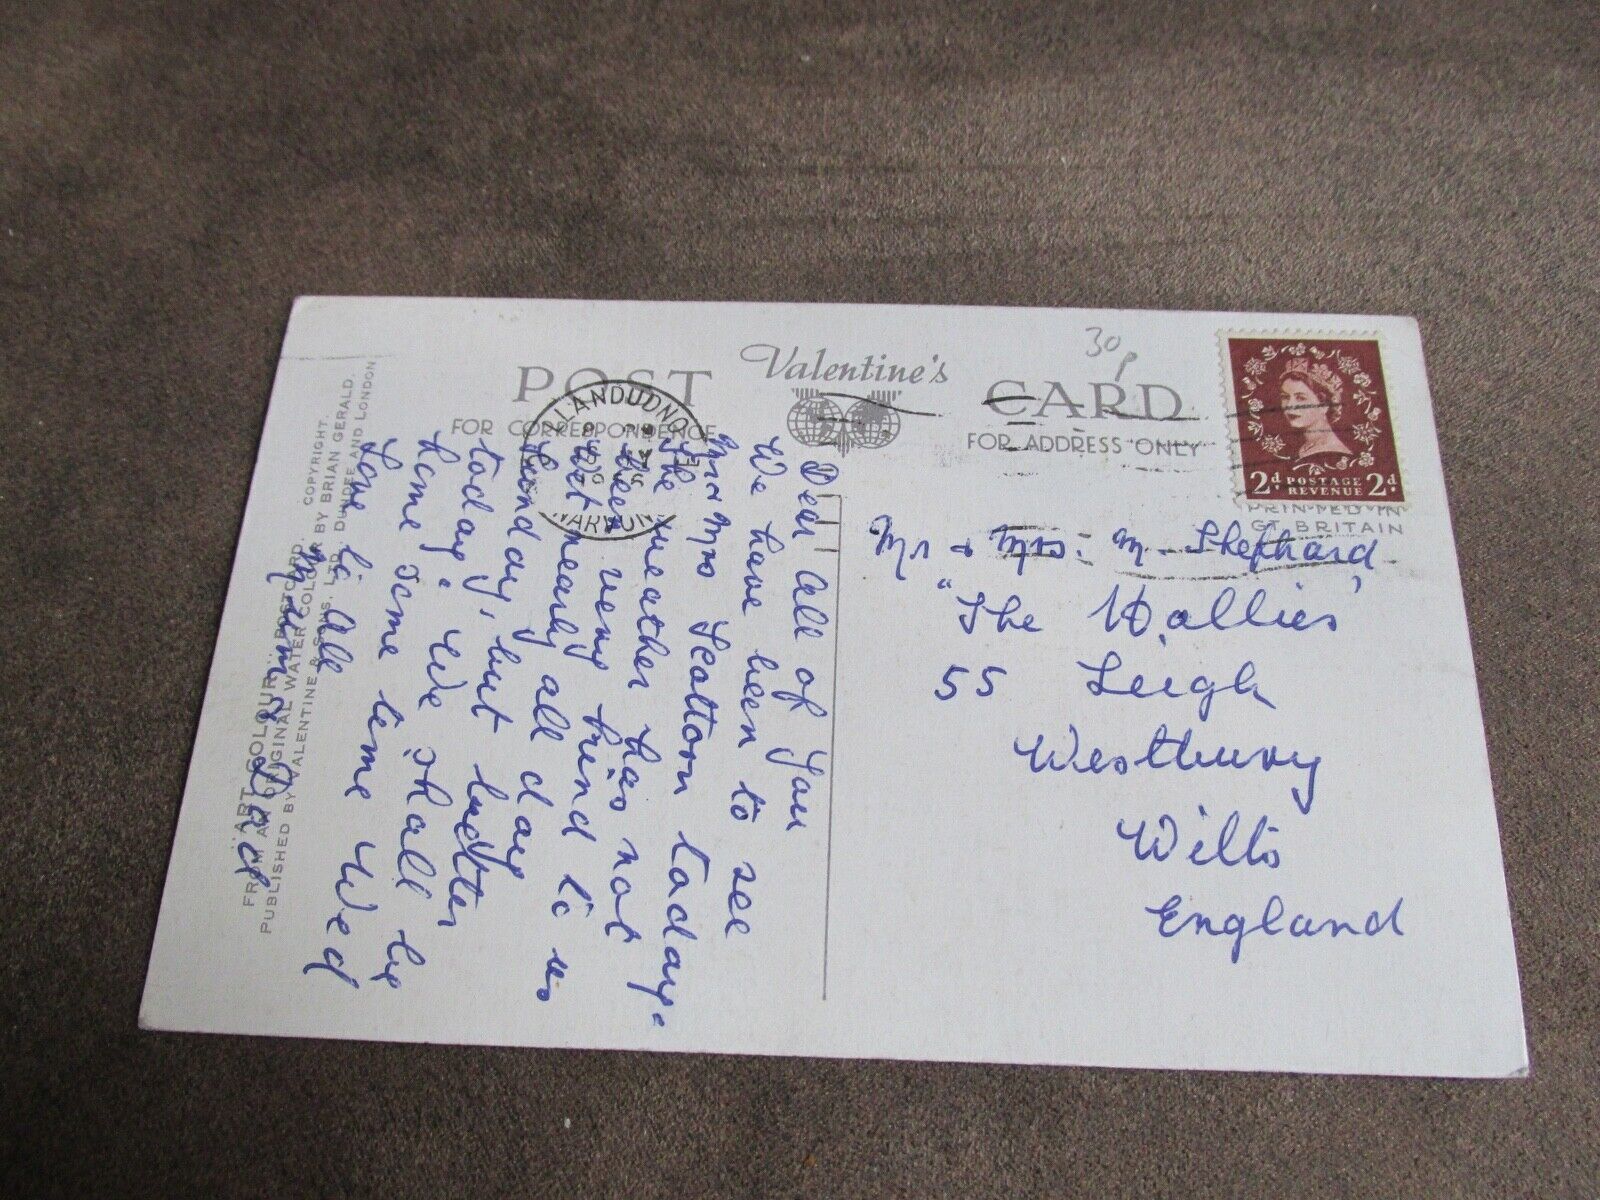 POST Valentine's CARD
30p
FOR CORRESPONDENCE
FOR ADDRESS ONLY
LLANDUDNO
2d POSTAGE REVENUE 2d
PRINTED IN
GT. BRITAIN
Dear All of You
We have been to see
Mr & Mrs Scotton today.
The weather has not
been very kind to us
Wet nearly all day
Sunday, but better
today. We shall be
home some time Wed
Love to All
Mum & Dad
Mr & Mrs. M. Shephard
"The Hollies"
55 Leigh
Westbury
Wilts
England
"ART COLOUR" POSTCARD. COPYRIGHT.
FROM AN ORIGINAL WATER COLOUR BY BRIAN GERALD.
PUBLISHED BY VALENTINE & SONS. LTD. DUNDEE AND LONDON